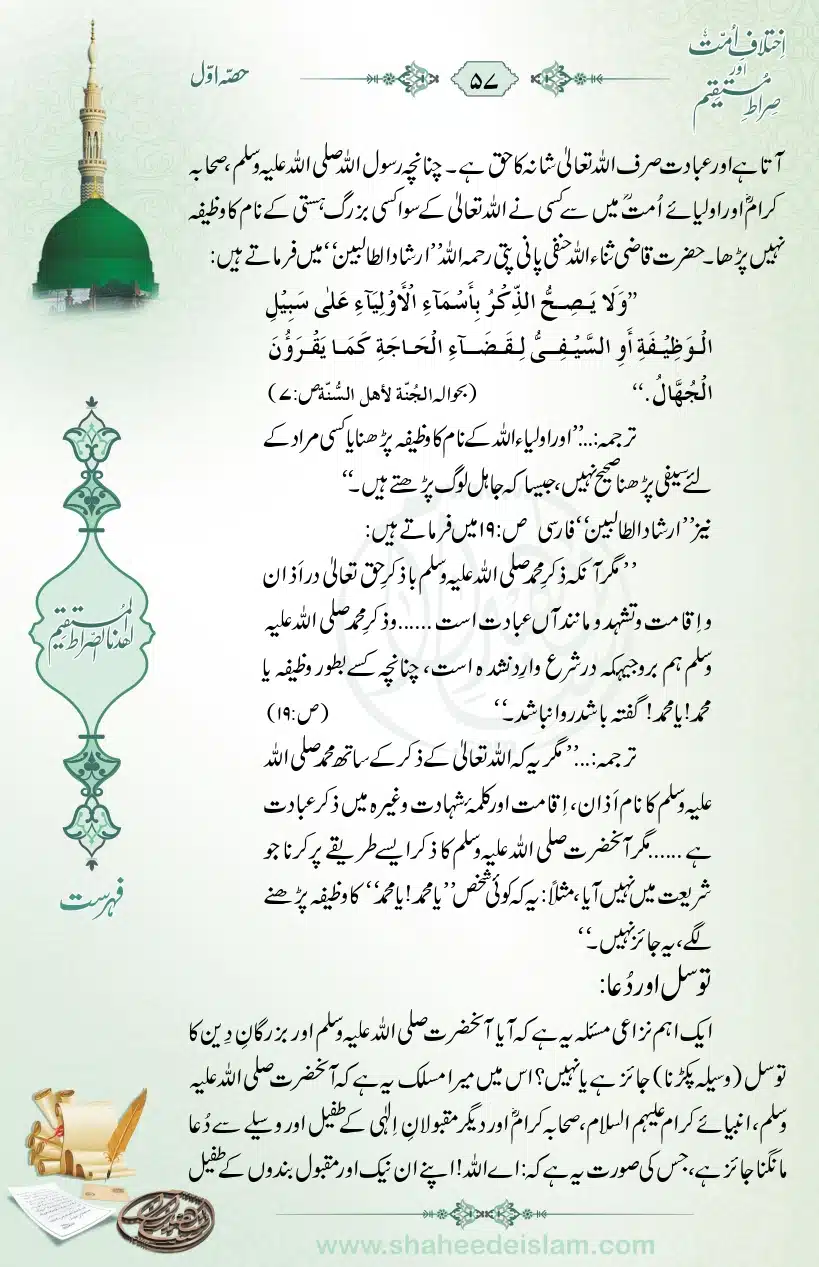 اِختلافِ اُمّت
اور
صِراطِ مُستقیم
۵۷
حصّہ اوّل
آتا ہے اور عبادت صرف اللہ تعالیٰ شانہ کا حق ہے۔ چنانچہ رسول اللہ صلی اللہ علیہ وسلم، صحابہ
کرامؓ اور اولیائے اُمتؒ میں سے کسی نے اللہ تعالیٰ کے سوا کسی بزرگ ہستی کے نام کا وظیفہ
نہیں پڑھا۔ حضرت قاضی ثناء اللہ حنفی پانی پتی رحمہ اللہ ’’ارشاد الطالبین‘‘ میں فرماتے ہیں:
’’وَلَا يَصِحُّ الذِّكْرُ بِأَسْمَآءِ الْأَوْلِيَآءِ عَلٰى سَبِيْلِ
الْوَظِيْفَةِ أَوِ السَّيْفِيُّ لِقَضَآءِ الْحَاجَةِ كَمَا يَقْرَؤُنَ
الْجُهَّالُ.‘‘ (بحوالہ الجُنّة لأهل السُّنّة ص:۷)
ترجمہ:...’’اور اولیاء اللہ کے نام کا وظیفہ پڑھنا یا کسی مراد کے
لئے سیفی پڑھنا صحیح نہیں، جیسا کہ جاہل لوگ پڑھتے ہیں۔‘‘
نیز ’’ارشاد الطالبین‘‘ فارسی ص:۱۹ میں فرماتے ہیں:
’’مگر آنکہ ذکرِ محمد صلی اللہ علیہ وسلم با ذکرِ حق تعالیٰ در اَذان
و اِقامت و تشہد و مانند آں عبادت است ...... و ذکرِ محمد صلی اللہ علیہ
وسلم ہم بروجیہکہ در شرع وارِد نشدہ است، چنانچہ کسے بطور وظیفہ یا
محمد! یا محمد! گفتہ باشد روا نباشد۔‘‘ (ص:۱۹)
ترجمہ:...’’مگر یہ کہ اللہ تعالیٰ کے ذکر کے ساتھ محمد صلی اللہ
علیہ وسلم کا نام اَذان، اِقامت اور کلمۂ شہادت وغیرہ میں ذکر عبادت
ہے ...... مگر آنحضرت صلی اللہ علیہ وسلم کا ذکر ایسے طریقے پر کرنا جو
شریعت میں نہیں آیا، مثلاً: یہ کہ کوئی شخص ’’یا محمد! یا محمد‘‘ کا وظیفہ پڑھنے
لگے، یہ جائز نہیں۔‘‘
توسل اور دُعا:
ایک اہم نزاعی مسئلہ یہ ہے کہ آیا آنحضرت صلی اللہ علیہ وسلم اور بزرگانِ دِین کا
توسل (وسیلہ پکڑنا) جائز ہے یا نہیں؟ اس میں میرا مسلک یہ ہے کہ آنحضرت صلی اللہ علیہ
وسلم، انبیائے کرام علیہم السلام، صحابہ کرامؓ اور دیگر مقبولانِ اِلٰہی کے طفیل اور وسیلے سے دُعا
مانگنا جائز ہے، جس کی صورت یہ ہے کہ: اے اللہ! اپنے ان نیک اور مقبول بندوں کے طفیل
اهدنا الصراط المستقيم
فہرست
www.shaheedeislam.com